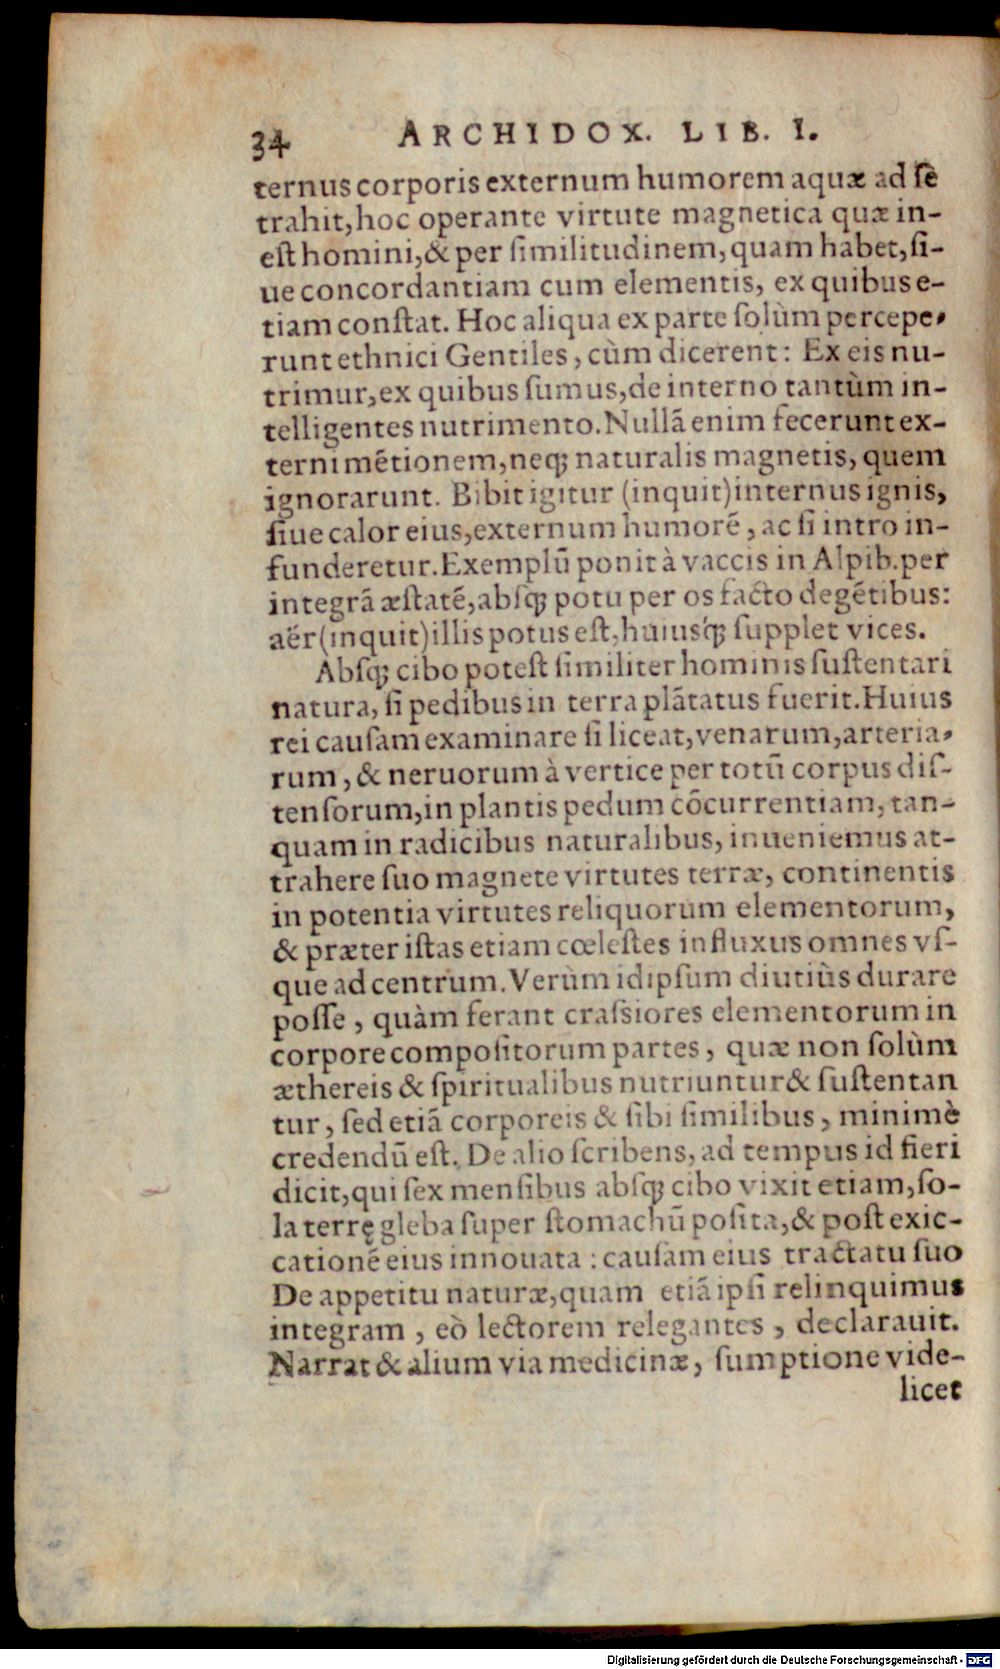 34 ARCHIDOX. LIB. I.
ternus corporis externum humorem aquæ ad sè
trahit, hoc operante virtute magnetica quæ in-
est homini, & per similitudinem, quam habet, si-
ue concordantiam cum elementis, ex quibus e-
tiam constat. Hoc aliqua ex parte solùm percepe-
runt ethnici Gentiles, cùm dicerent: Ex eis nu-
trimur, ex quibus sumus, de interno tantùm in-
telligentes nutrimento. Nullā enim fecerunt ex-
terni mētionem, neq; naturalis magnetis, quem
ignorarunt. Bibit igitur (inquit) internus ignis,
siue calor eius, externum humorē, ac si intro in-
funderetur. Exemplū ponit à vaccis in Alpib. per
integrā æstatē, absq; potu per os facto degētibus:
aër (inquit) illis potus est, huiusq́; supplet vices.
Absq; cibo potest similiter hominis sustentari
natura, si pedibus in terra plātatus fuerit. Huius
rei causam examinare si liceat, venarum, arteria-
rum, & neruorum à vertice per totū corpus dis-
tensorum, in plantis pedum cōcurrentiam, tan-
quam in radicibus naturalibus, inueniemus at-
trahere suo magnete virtutes terræ, continentis
in potentia virtutes reliquorum elementorum,
& præter istas etiam cœlestes influxus omnes vs-
que ad centrum. Verùm idipsum diutiùs durare
posse, quàm ferant crassiores elementorum in
corpore compositorum partes, quæ non solùm
æthereis & spiritualibus nutriuntur & sustentan
tur, sed etiā corporeis & sibi similibus, minimè
credendū est. De alio scribens, ad tempus id fieri
dicit, qui sex mensibus absq; cibo vixit etiam, so-
la terrę gleba super stomachū posita, & post exic-
cationē eius innouata: causam eius tractatu suo
De appetitu naturæ, quam etiā ipsi relinquimus
integram, eò lectorem relegantes, declarauit.
Narrat & alium via medicinæ, sumptione vide-
licet
Digitalisierung gefördert durch die Deutsche Forschungsgemeinschaft - DFG